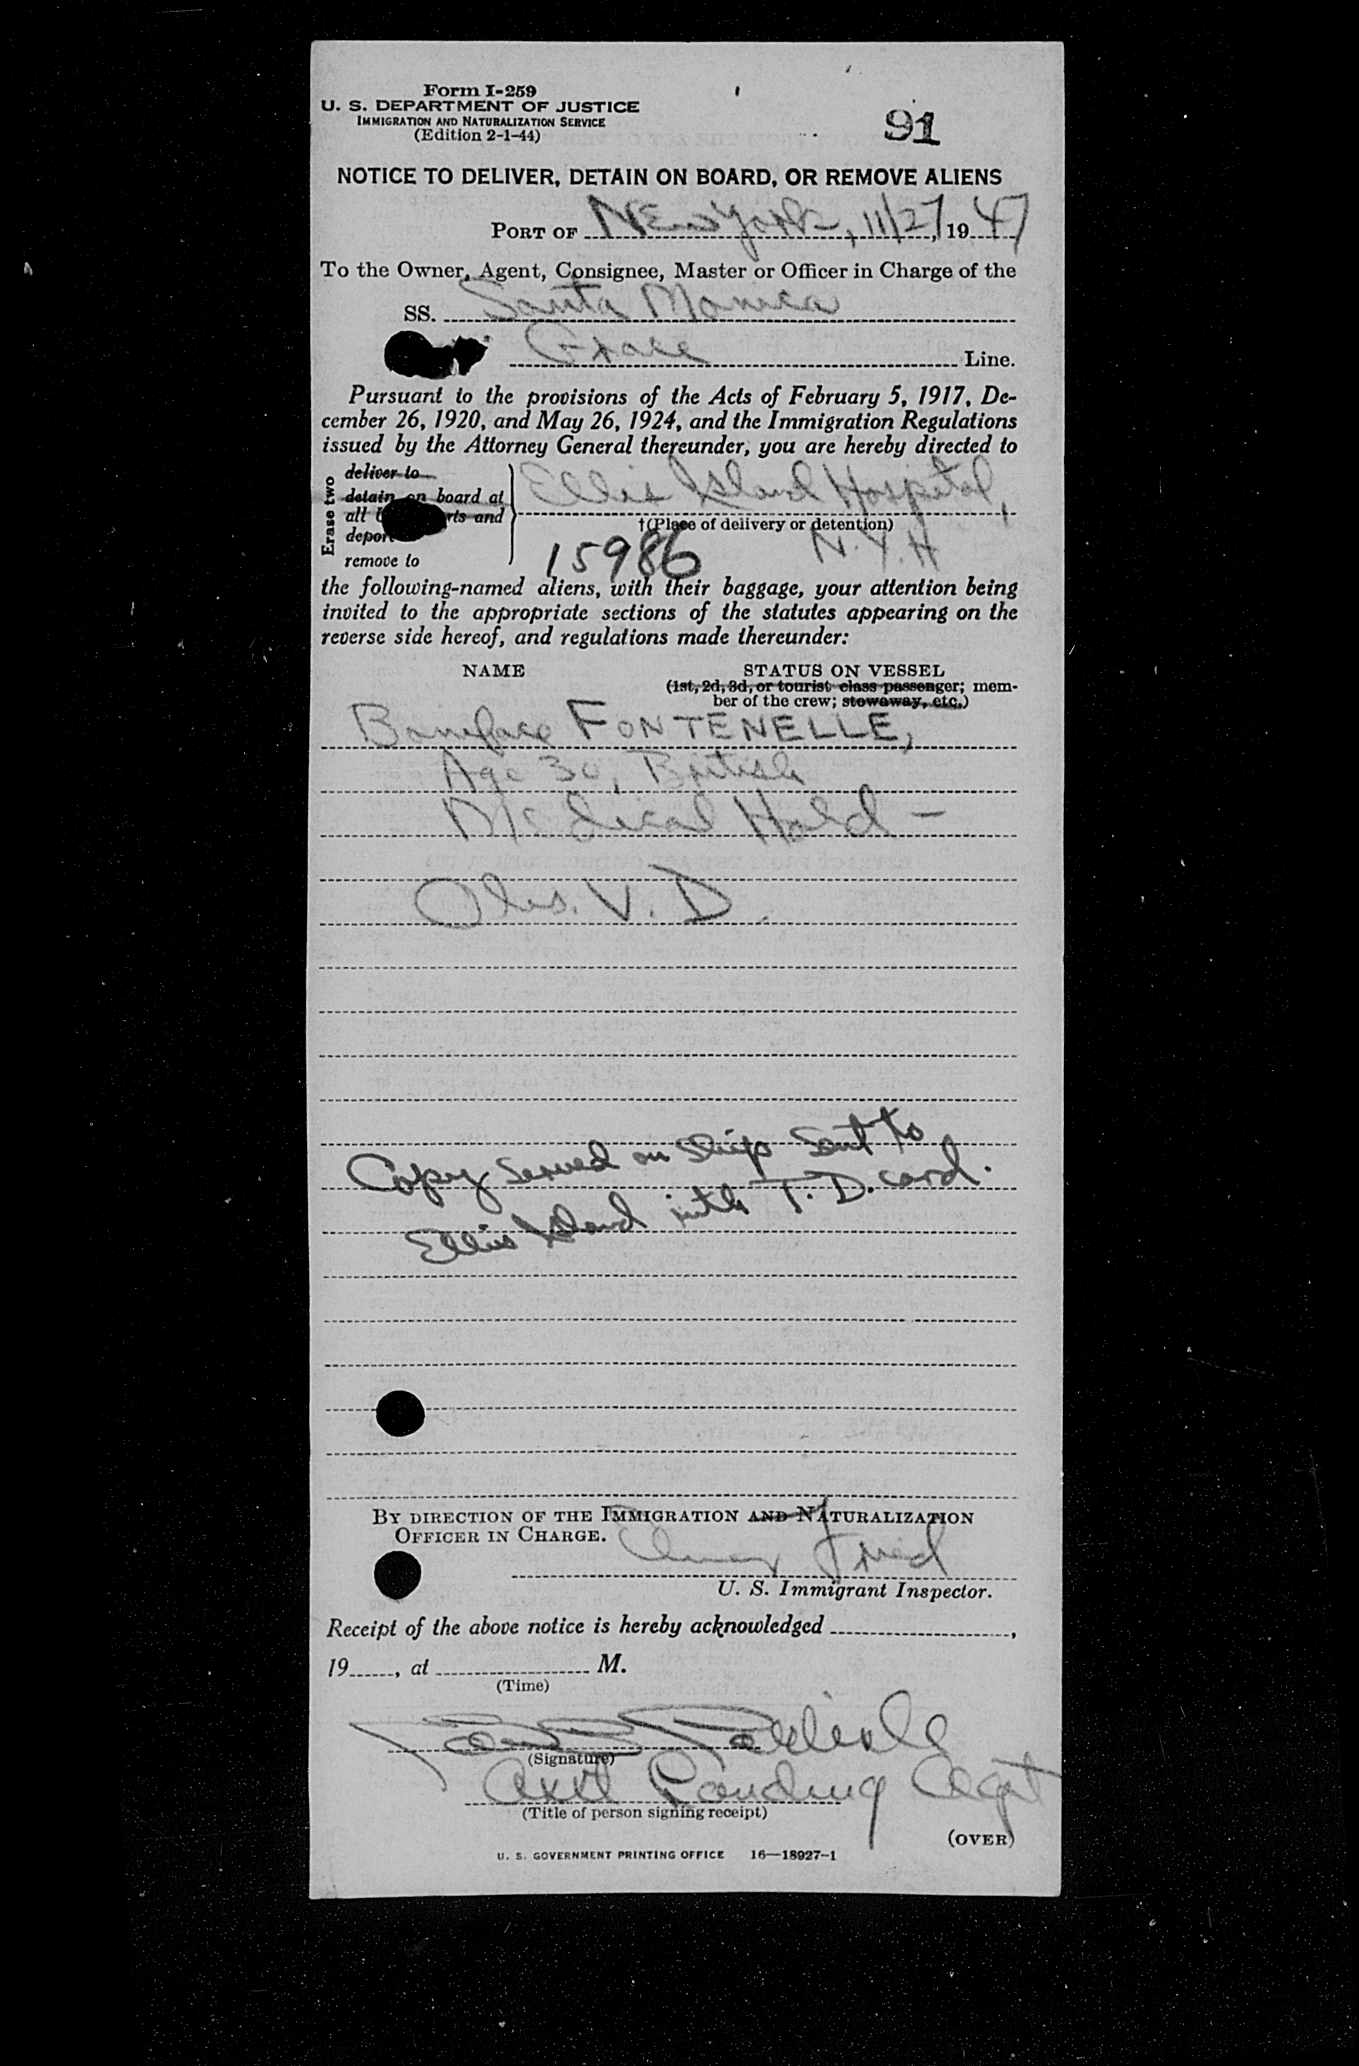 Form I-259
U. S. DEPARTMENT OF JUSTICE
IMMIGRATION AND NATURALIZATION SERVICE
(Edition 2-1-44)
91
NOTICE TO DELIVER, DETAIN ON BOARD, OR REMOVE ALIENS
PORT OF New York, 11/27, 1947
To the Owner, Agent, Consignee, Master or Officer in Charge of the
SS. Santa Monica
Grace Line.
Pursuant to the provisions of the Acts of February 5, 1917, De-
cember 26, 1920, and May 26, 1924, and the Immigration Regulations
issued by the Attorney General thereunder, you are hereby directed to
Erase two
deliver to
detain on board at Ellis Island Hospital,
all and
†(Place of delivery or detention)
N.Y.H
remove to
15986
the following-named aliens, with their baggage, your attention being
invited to the appropriate sections of the statutes appearing on the
reverse side hereof, and regulations made thereunder:
NAME STATUS ON VESSEL
(1st, 2d, 3d, or tourist class passenger; mem-
ber of the crew; stowaway, etc.)
Boniface FONTENELLE,
Age 30, British
Medical Hold -
Obs. V. D.
Copy served on ship sent to
Ellis Island with T. D. card.
BY DIRECTION OF THE IMMIGRATION AND NATURALIZATION
OFFICER IN CHARGE.
U. S. Immigrant Inspector.
Receipt of the above notice is hereby acknowledged ,
19 , at M.
(Time)
(Signature)
Asst Landing Agt
(Title of person signing receipt)
(OVER)
U. S. GOVERNMENT PRINTING OFFICE 16—18927-1